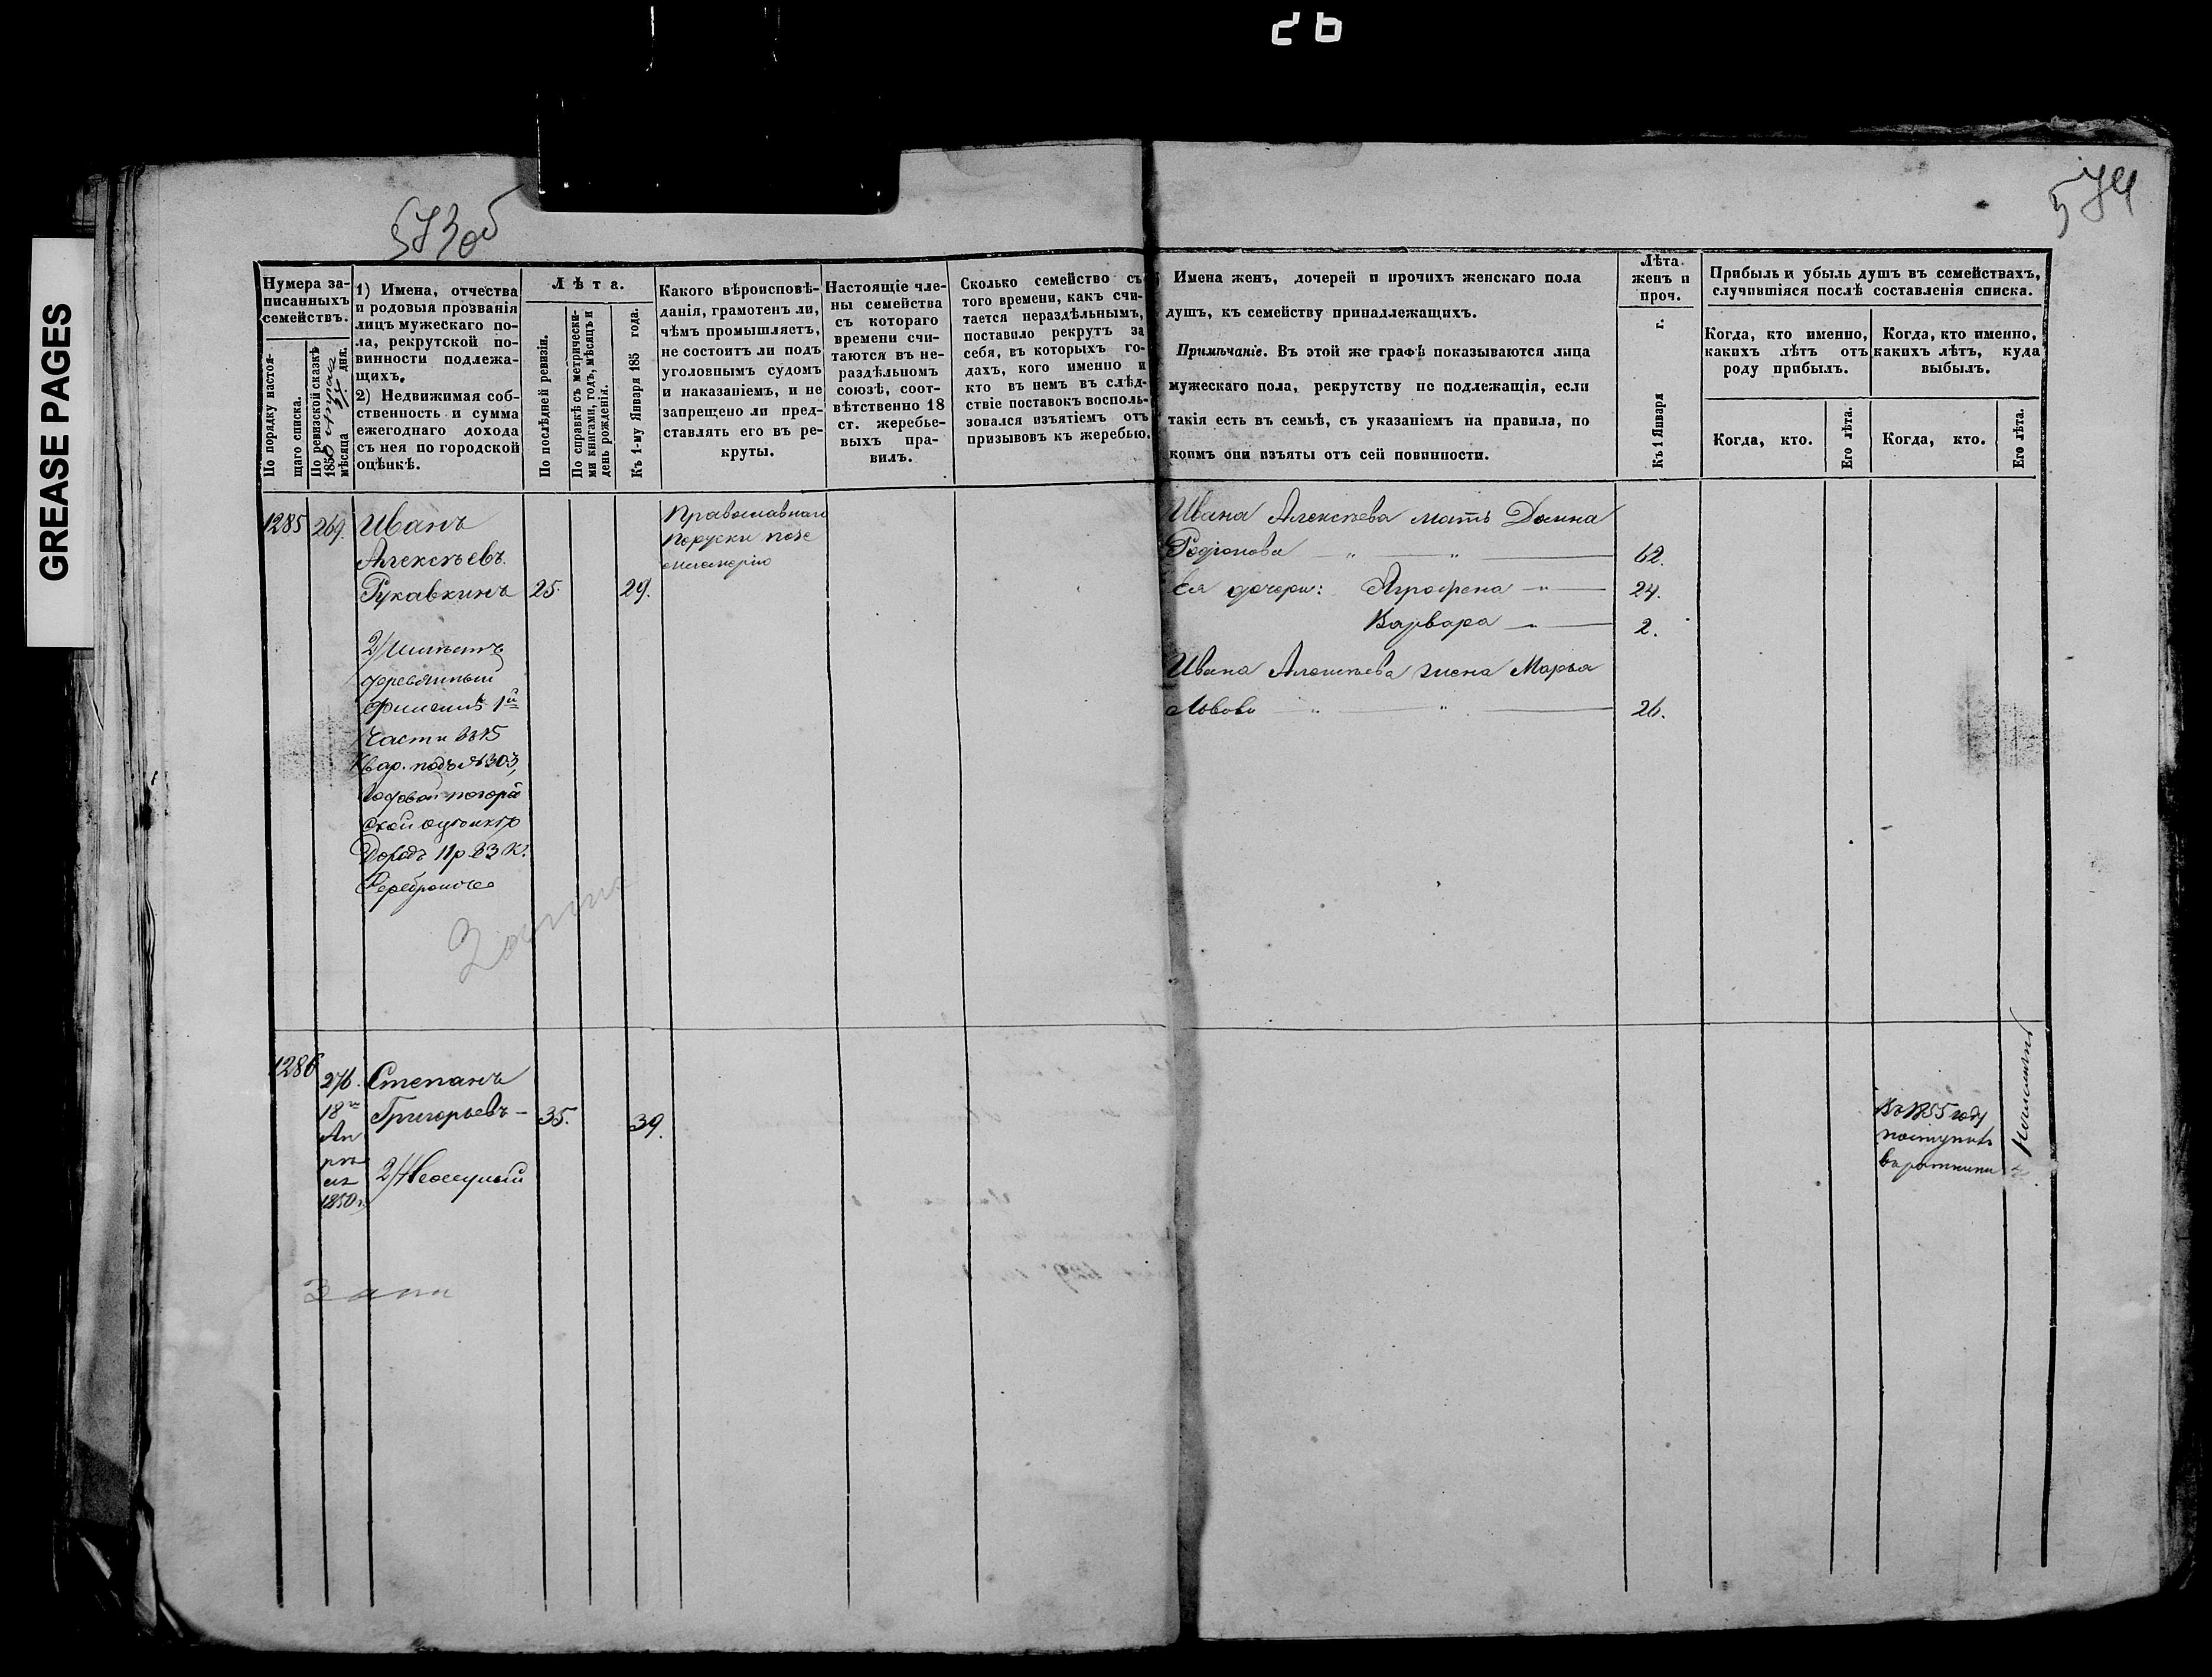 26
GREASE PAGES
573об
574
Нумера за-
писанныхъ
семействъ.
По порядку настоя-
щаго списка.
По ревизской сказкѣ
1850
мѣсяца дня.
1) Имена, отчества
и родовыя прозванія
лицъ мужескаго по-
ла, рекрутской по-
винности подлежа-
щихъ.
2) Недвижимая соб-
ственность и сумма
ежегоднаго дохода
съ нея по городской
оцѣнкѣ.
Лѣта.
По послѣдней ревизіи.
По справкѣ съ метрически-
ми книгами, годъ, мѣсяцъ и
день рожденія.
Къ 1-му Января 185 года.
Какого вѣроисповѣ-
данія, грамотенъ ли,
чѣмъ промышляетъ,
не состоитъ ли подъ
уголовнымъ судомъ
и наказаніемъ, и не
запрещено ли пред-
ставлять его въ ре-
круты.
Настоящіе чле-
ны семейства
съ котораго
времени счи-
таются въ не-
раздѣльномъ
союзѣ, соот-
вѣтственно 18
ст. жеребье-
выхъ пра-
вилъ.
Сколько семейство съ
того времени, какъ счи-
тается нераздѣльнымъ,
поставило рекрутъ за
себя, въ которыхъ го-
дахъ, кого именно и
кто въ немъ въ слѣд-
ствіе поставокъ восполь-
зовался изъятіемъ отъ
призывовъ къ жеребью.
Имена женъ, дочерей и прочихъ женскаго пола
душъ, къ семейству принадлежащихъ.
Примѣчаніе. Въ этой же графѣ показываются лица
мужескаго пола, рекрутству не подлежащія, если
такія есть въ семьѣ, съ указаніемъ на правила, по
коимъ они изъяты отъ сей повинности.
Лѣта
женъ и
проч.
Къ 1 Января г.
Прибыль и убыль душъ въ семействахъ,
случившіяся послѣ составленія списка.
Когда, кто именно,
какихъ лѣтъ отъ
роду прибылъ.
Когда, кто.
Его лѣта.
Когда, кто именно,
какихъ лѣтъ, куда
выбылъ.
Когда, кто.
Его лѣта.
1285 269. Иванъ
Алексѣевъ
Рукавкинъ 25. 29.
Православнаго
Поруски
2/ Имѣетъ
деревянный
1й
Части въ 15
Квар. подъ №303,
ской оцѣнкѣ
Доходъ 11 р 23 к.
Серебромъ
Ивана Алексѣева мать Домна
Родіонова 62.
Ея дочери: Аграфена 24.
Варвара 2.
Ивана Алексѣева жена Марья
Львова 26.
1286 276. Степанъ
18го Григорьевъ 35. 39.
Ап
рѣ
ля
1850 г.
2/ Неосѣдлый
Въ 1855 году
поступилъ
въ ратники